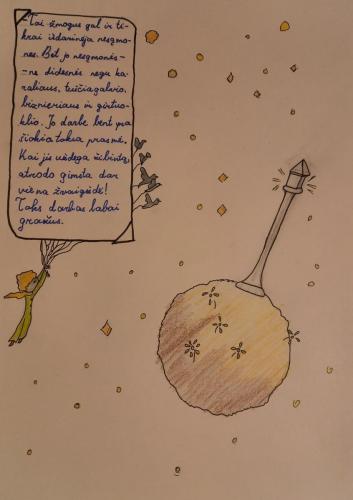 -Tai žmogus gal ir ti-
krai išdarinėja nesąmo-
nes. Bet jo nesąmonės-
-ne didesnės negu ka-
raliaus, tuščiagalvio,
biznieriaus ir girtuo-
klio. Jo darbe bent yra
šiokia tokia prasmė.
Kai jis uždega žibintą,
atrodo gimsta dar
viena žvaigždė!
Toks darbas labai
gražus.